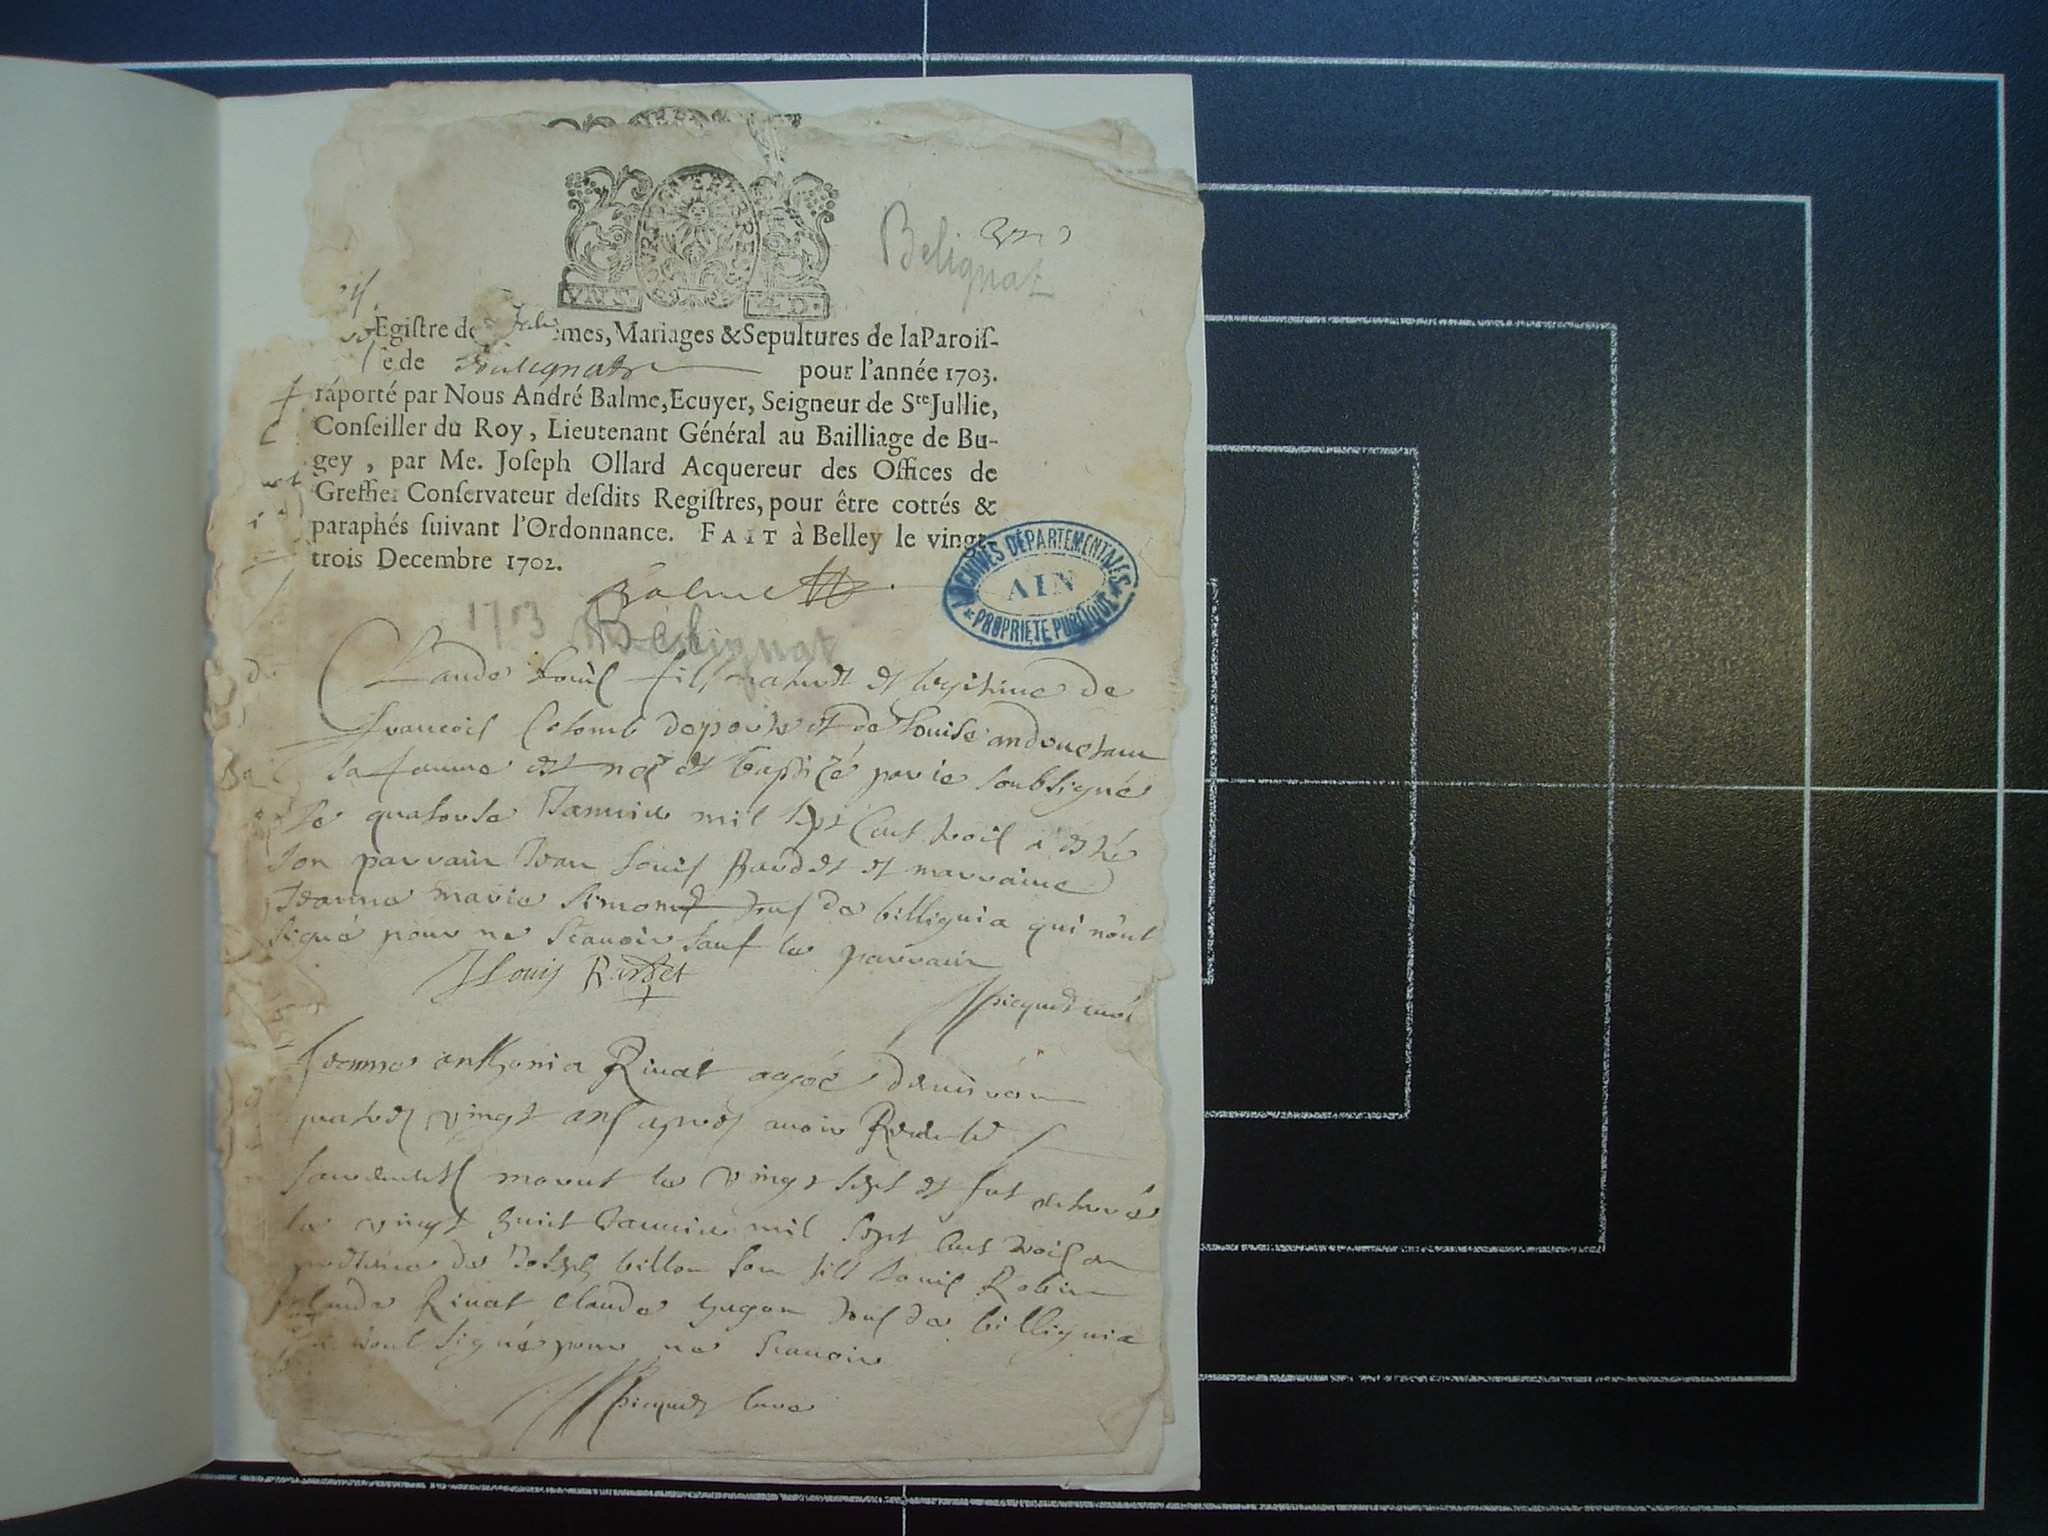 VNS 4D.
Belignat
Egistre de mes, Mariages & Sepultures de la Parois-
se de pour l'année 1703.
raporté par Nous André Balme, Ecuyer, Seigneur de Ste Jullie,
Conseiller du Roy, Lieutenant Général au Bailliage de Bu-
gey, par Me. Joseph Ollard Acquereur des Offices de
Greffier Conservateur desdits Registres, pour être cottés &
paraphés suivant l'Ordonnance. FAIT à Belley le vingt-
trois Decembre 1702.
Balme
ARCHIVES DÉPARTEMENTALES
AIN
* PROPRIÉTÉ PUBLIQUE *
1703 Bélignat
Claude Louis fils naturel et legitime de
francois Colomb et de Louise
sa famme est né et baptizé par ie soubsigné
le quatorse Janvier mil sept cent trois a esté
son parrain Jean Louis Rardet et marraine
Jeanne marie Simond de billignia qui n'ont
signé pour ne scauoir sauf le parrain
JLouis Rardet
picquet curé
Jeanne anthonia Rivat aagée denviron
quatre vingt ans apres avoir Receu les
sacrements mourut le vingt sept et fut enterré
le vingt huict Janvier mil sept cent trois en
presence de Joseph billon son fils Louis Robin
Claude Rivat Claude hugon tous de billignia
qui n'ont signé pour ne scauoir
picquet curé